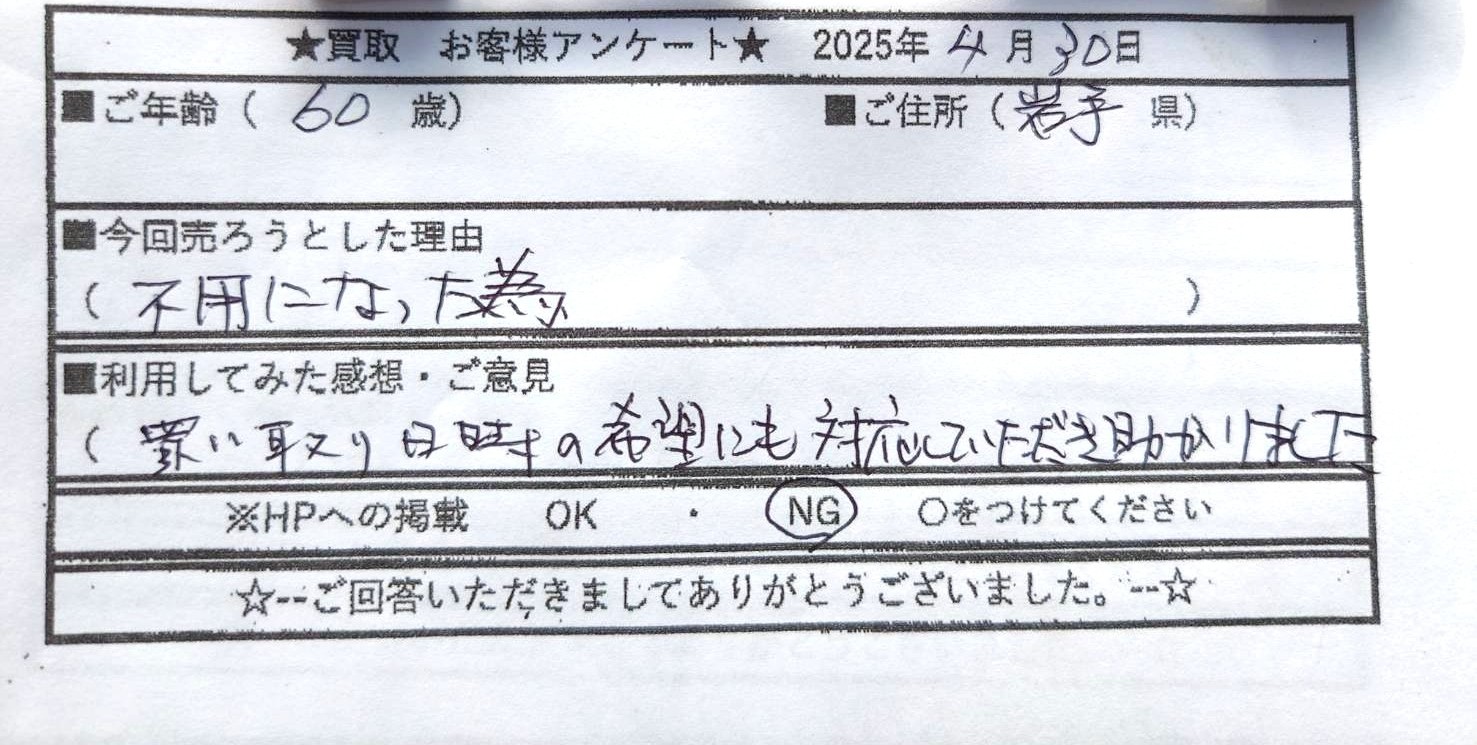 ★買取 お客様アンケート★ 2025年 4月 30日
■ご年齢( 60 歳) ■ご住所(岩手 県)
■今回売ろうとした理由
(不用になった為 )
■利用してみた感想・ご意見
(買い取り日時の希望にも対応していただき助かりました
※HPへの掲載 OK ・ NG ○をつけてください
☆--ご回答いただきましてありがとうございました。--☆